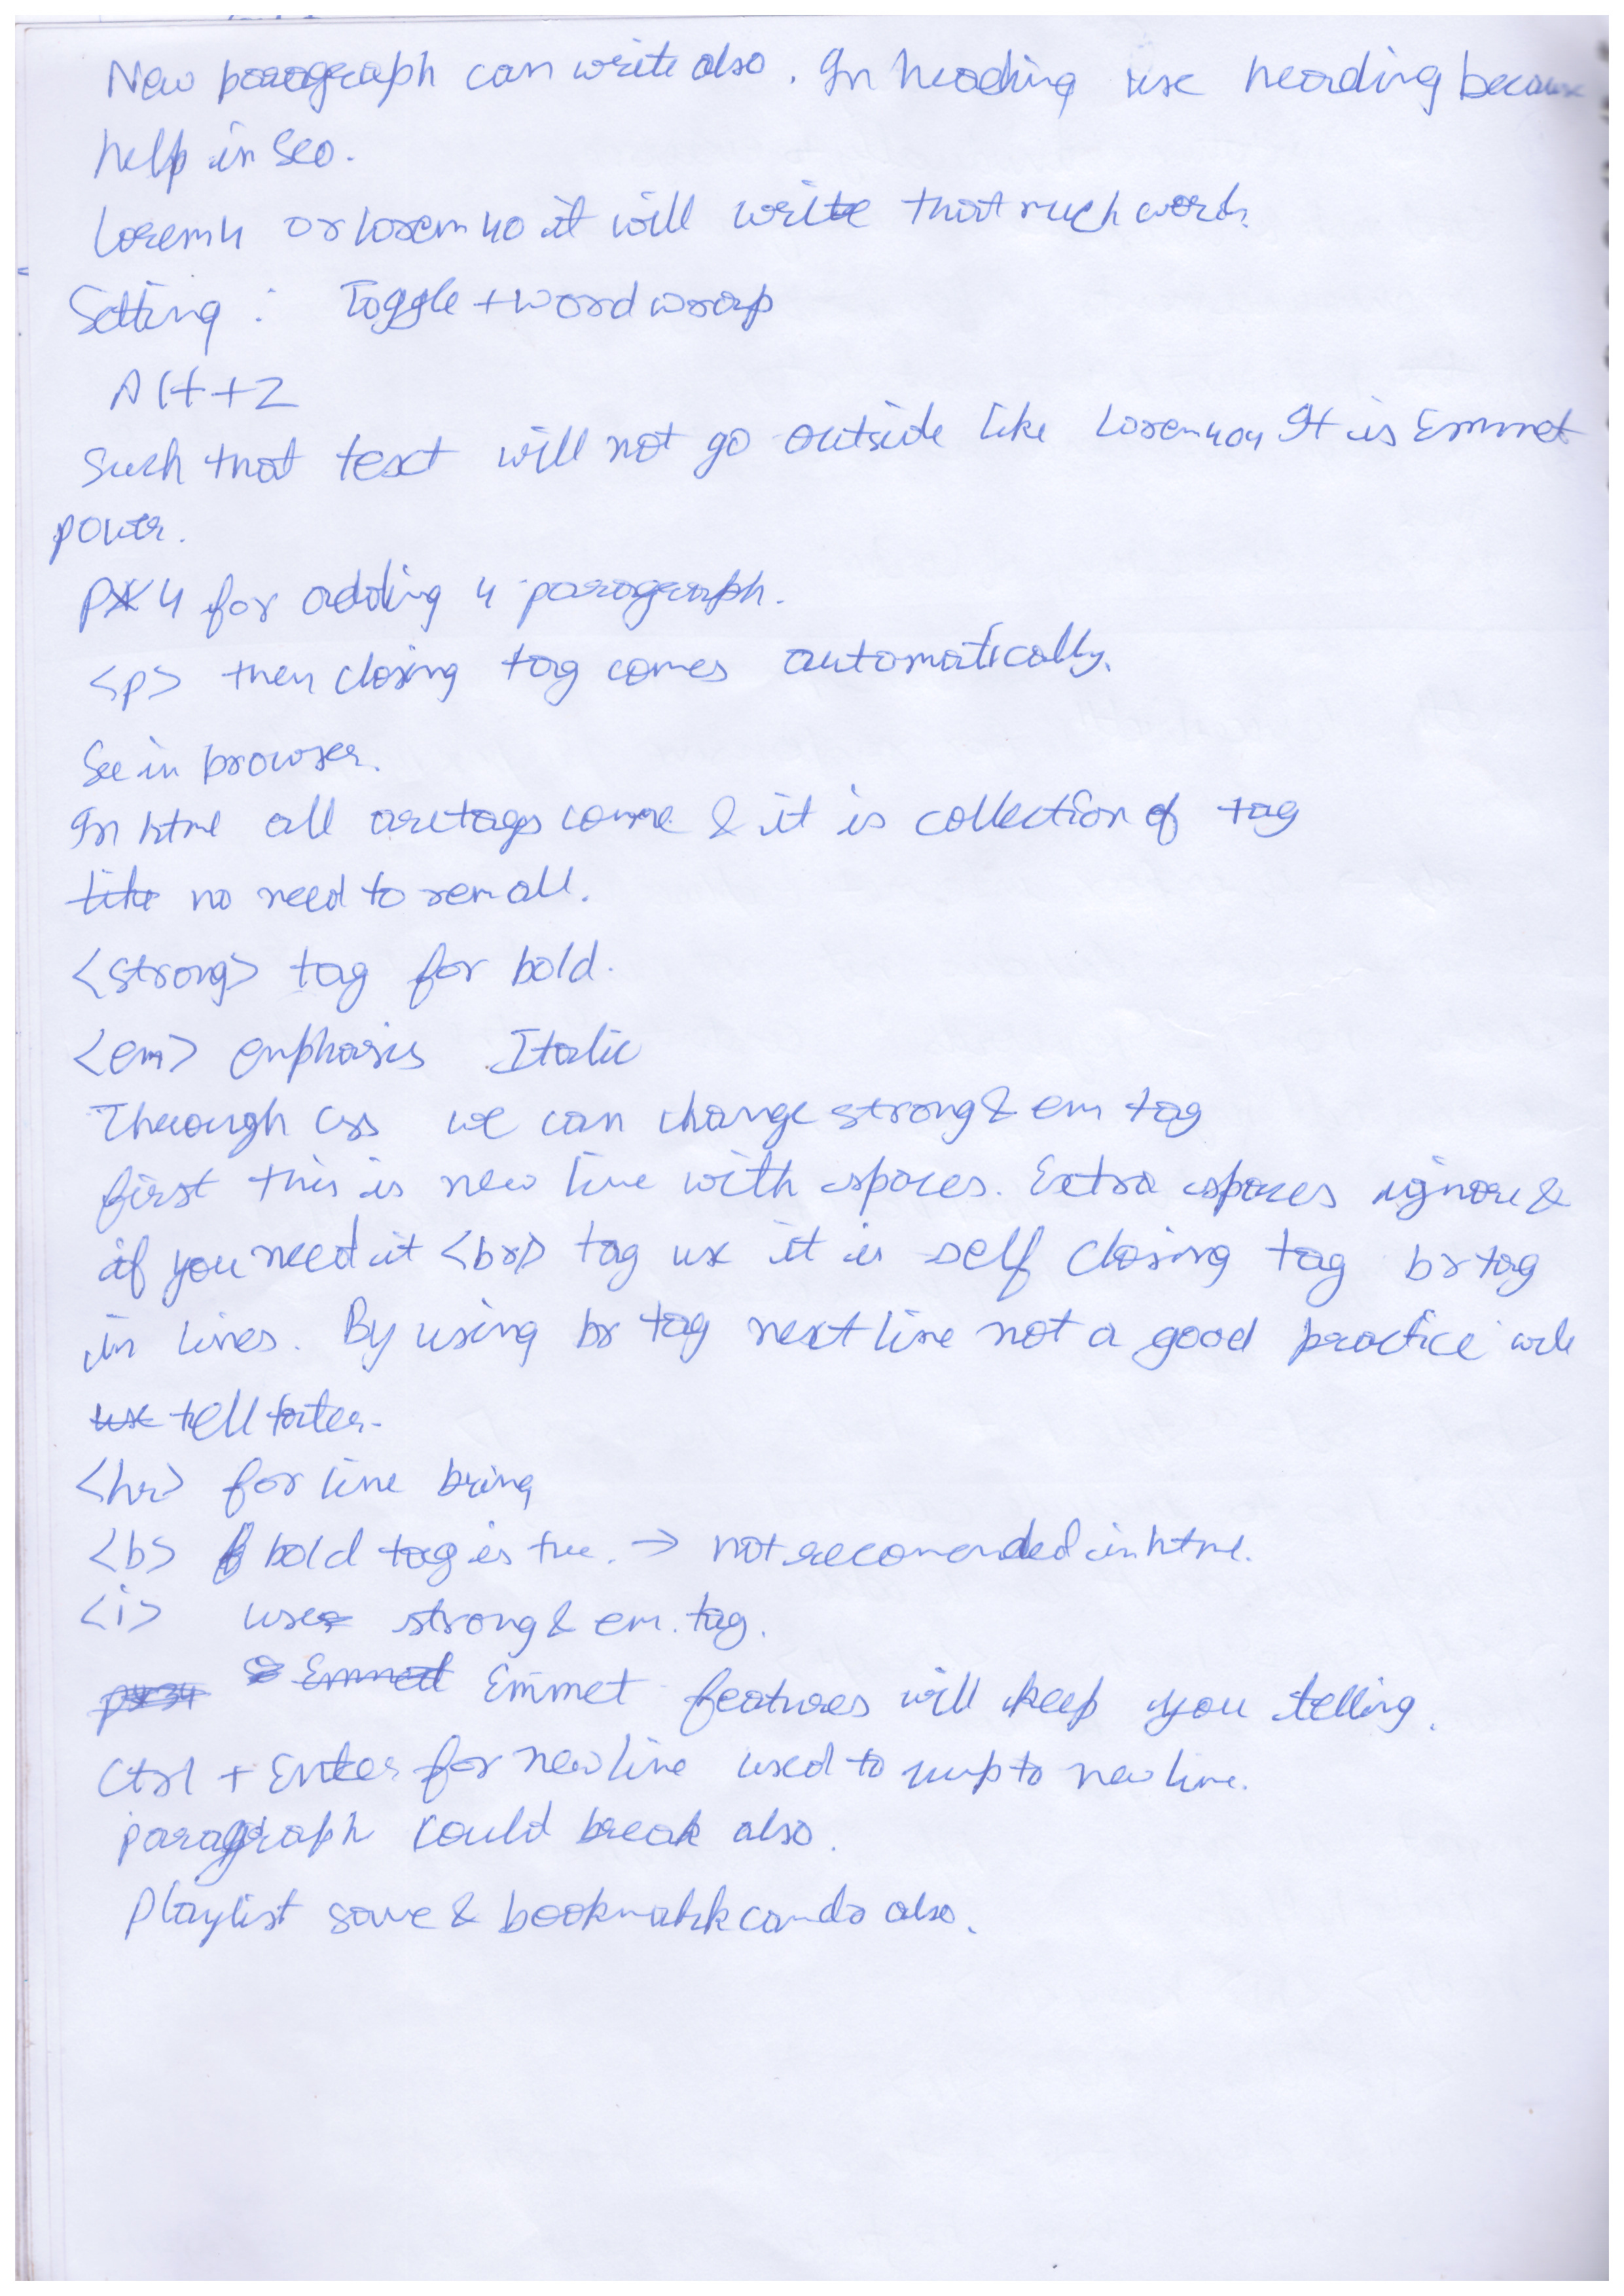 New paragraph can write also. In heading use heading because
help in Seo.
Lorem4 or lorem 40 it will write that much words.
Setting : Toggle + word wrap
Alt + Z
Such that text will not go outside like Lorem404 It is Emmet
power.
p*4 for adding 4 paragraph.
<p> then closing tag comes automatically.
See in browser.
In html all are tags come & it is collection of tag
like no need to rem all.
<strong> tag for bold.
<em> emphasis Italic
Through Css we can change strong & em tag
first this is new line with spaces. Extra spaces ignore &
if you need it <br> tag use it is self closing tag br tag
in lines. By using br tag next line not a good practice
use tell later.
<hr> for line bring
<b> bold tag is true. → not recomended in html.
<i> use strong & em. tag.
p*34 Emmet Emmet features will keep you telling.
Ctrl + Enter for new line used to jump to new line.
paragraph could break also.
Playlist save & bookmark can do also.